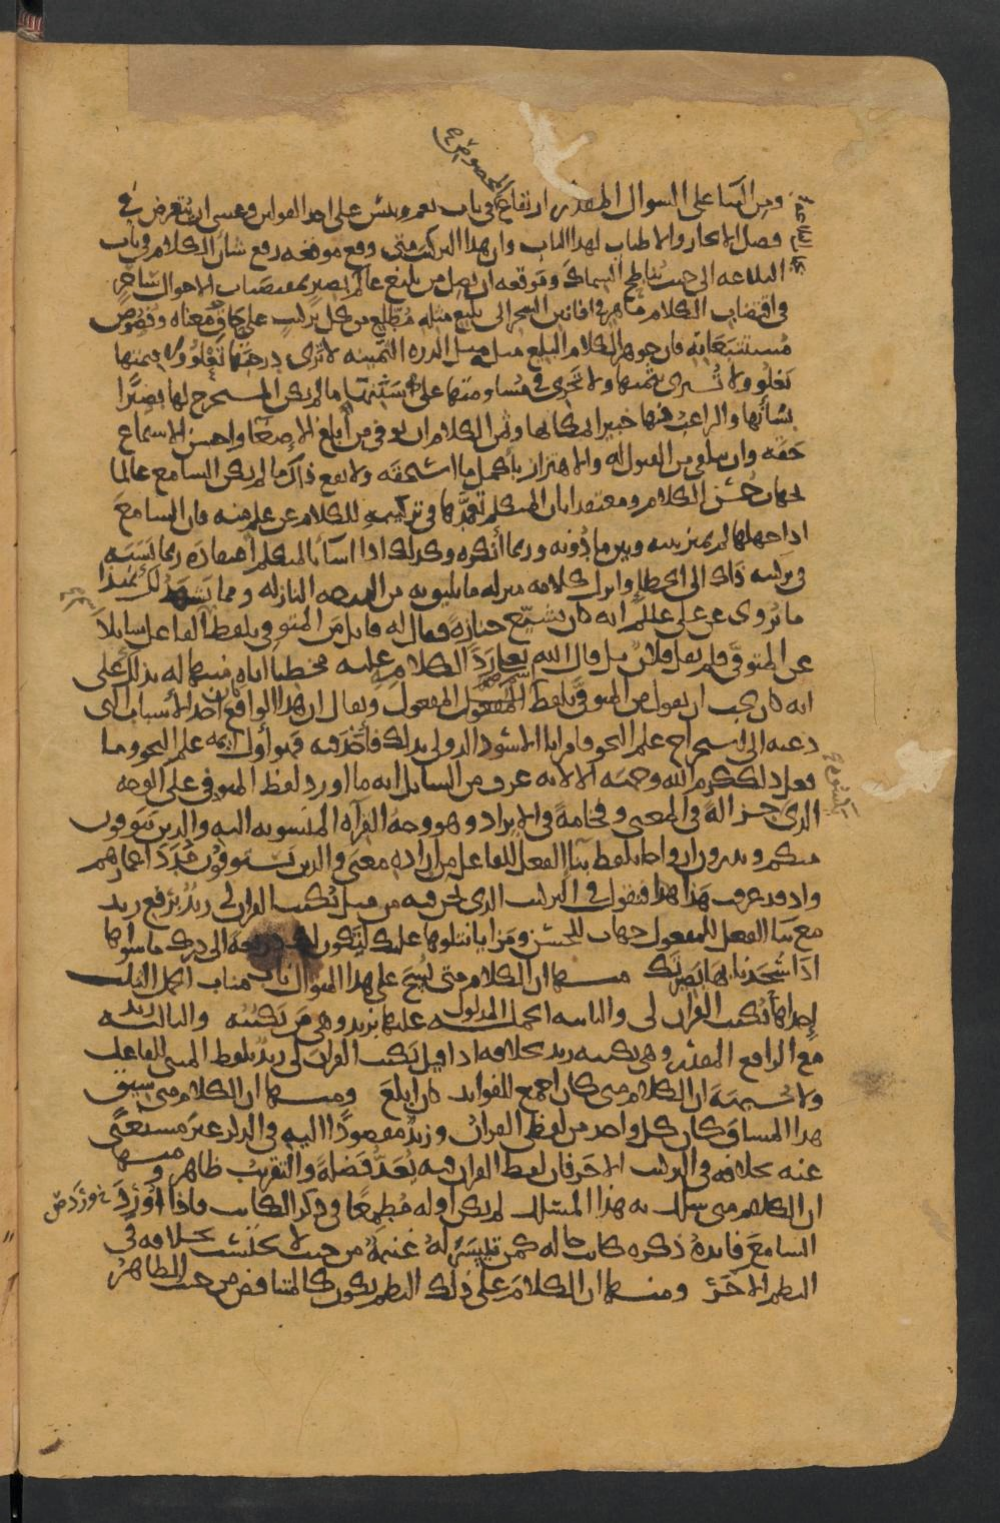 المخصوص صح
ومن البنا على السوال المقدر ارتفاع في باب نعم وبئس على احد القولين وعسى ان نتعرض له في
فصل الايجاز والاطناب لهذا الباب وان هذا التركيب متى وقع موقعه رفع شأن الكلام في باب
البلاغه الى حيث يناطح السماك وموقعه ان يصل من بليغ عالم بصير بمقتضيات الاحوال ساحر
في اقتضاب الكلام ماهر في افانين السحر الى بليغ مثله مطلع من كل تركيب على حاق معناه وفصوص
مستتبعاته فان جوهر الكلام البليغ مثله مثل الدرة الثمينه لا ترى درجتها تعلو ولا قيمتها
تغلو ولا تشترى بثمنها ولا تجرى في مساومتها على سننها ما لم يكن المستخرج لها بصيرا
بشأنها والراغب فيها خبيرا بمكانها وثمن الكلام ان يوفى من ابلغ الاصغا واحسن الاستماع
حقه وان يتلقى من القبول له والاهتزاز بأكمل ما استحقه ولا يقع ذلك ما لم يكن السامع عالما
بجهات حسن الكلام ومعتقدا بان المتكلم تعمدها في تركيبه للكلام عن علم منه فان السامع
اذا جهلها لم يميز بينه وبين ما دونه وربما أنكره وكذلك اذا اسآ بالمتكلم اعتقاده ربما نسبه
في تركيبه ذاك الى الخطإ وانزل كلامه منزلة ما يليق به من الدرجه النازله ومما يشهد لك بهذا
ما يروى عن علي عللم انه كان يشيع جنازة فقال له قايل من المتوفي بلفظ الفاعل سايلا
عن المتوفى فلم يقل فلان بل قال الله تعالى ردا لكلامه عليه مخطيا اياه منبها له بذلك على
انه كان يجب ان يقول من المتوفى بلفظ المفعول ويقال ان هذا الواقع كان احد الأسباب التي
دعته الى استخراج علم النحو فامر ابا الاسود الدولي بذلك فأخذ فيه فهو أول ايمه علم النحو وما
فعل ذلك كرم الله وجهه الا لانه عرف من السايل انه ما اورد لفظ المتوفي على الوجه
الذي جزالة في المعنى وفخامة في الايراد وهو وجه القرآة المنسوبه اليه والذين يتوفون
منكم ويذرون ازواجا بلفظ بنآ الفعل للفاعل من ارادة معنى والذين يستوفون مدد اعمارهم
واذ قد عرفت هذا فنقول في التركيب الذي نحن فيه من قبل يكتب القران لي زيد برفع زيد
مع بنا الفعل للمفعول جهات للحسن ومزايا نتلوها عليك ليكون لك ذريعة الى درك ما سواها
اذا شحذنا بها بصيرتك منها ان الكلام متى نسج على هذا المنوال ناب مناب الجمل الثلث
احداها يكتب القران لي والثانيه الجمله المدلول عليها بزيد وهي من يكتبه والثالثه زيد
مع الرافع المقدر وهي يكتبه زيد بخلافه اذا قيل يكتب القران لي زيد بلفظ المبني للفاعل
ولا شبهة ان الكلام متى كان اجمع للفوايد كان ابلغ ومنها ان الكلام متى سيق
هذا المساق كان كل واحد من لفظي القران وزيد مقصودا اليه في الذكر غير مستغنى
عنه بخلافه في التركيب الاخر فان لفظ القران فيه يعد فضلة والتقريب ظاهر ومنها
ان الكلام متى سلك به هذا المسلك لم يكن اوله مطمعا في ذكر الكاتب فاذا اورد
السامع فايدة ذكره كانت حاله كمن تيسر له غنيمة من حيث لا يحتسب بخلافه في
النظم الاخر ومنها ان الكلام على ذلك النظم يكون كالمتناقض من حيث الظاهر